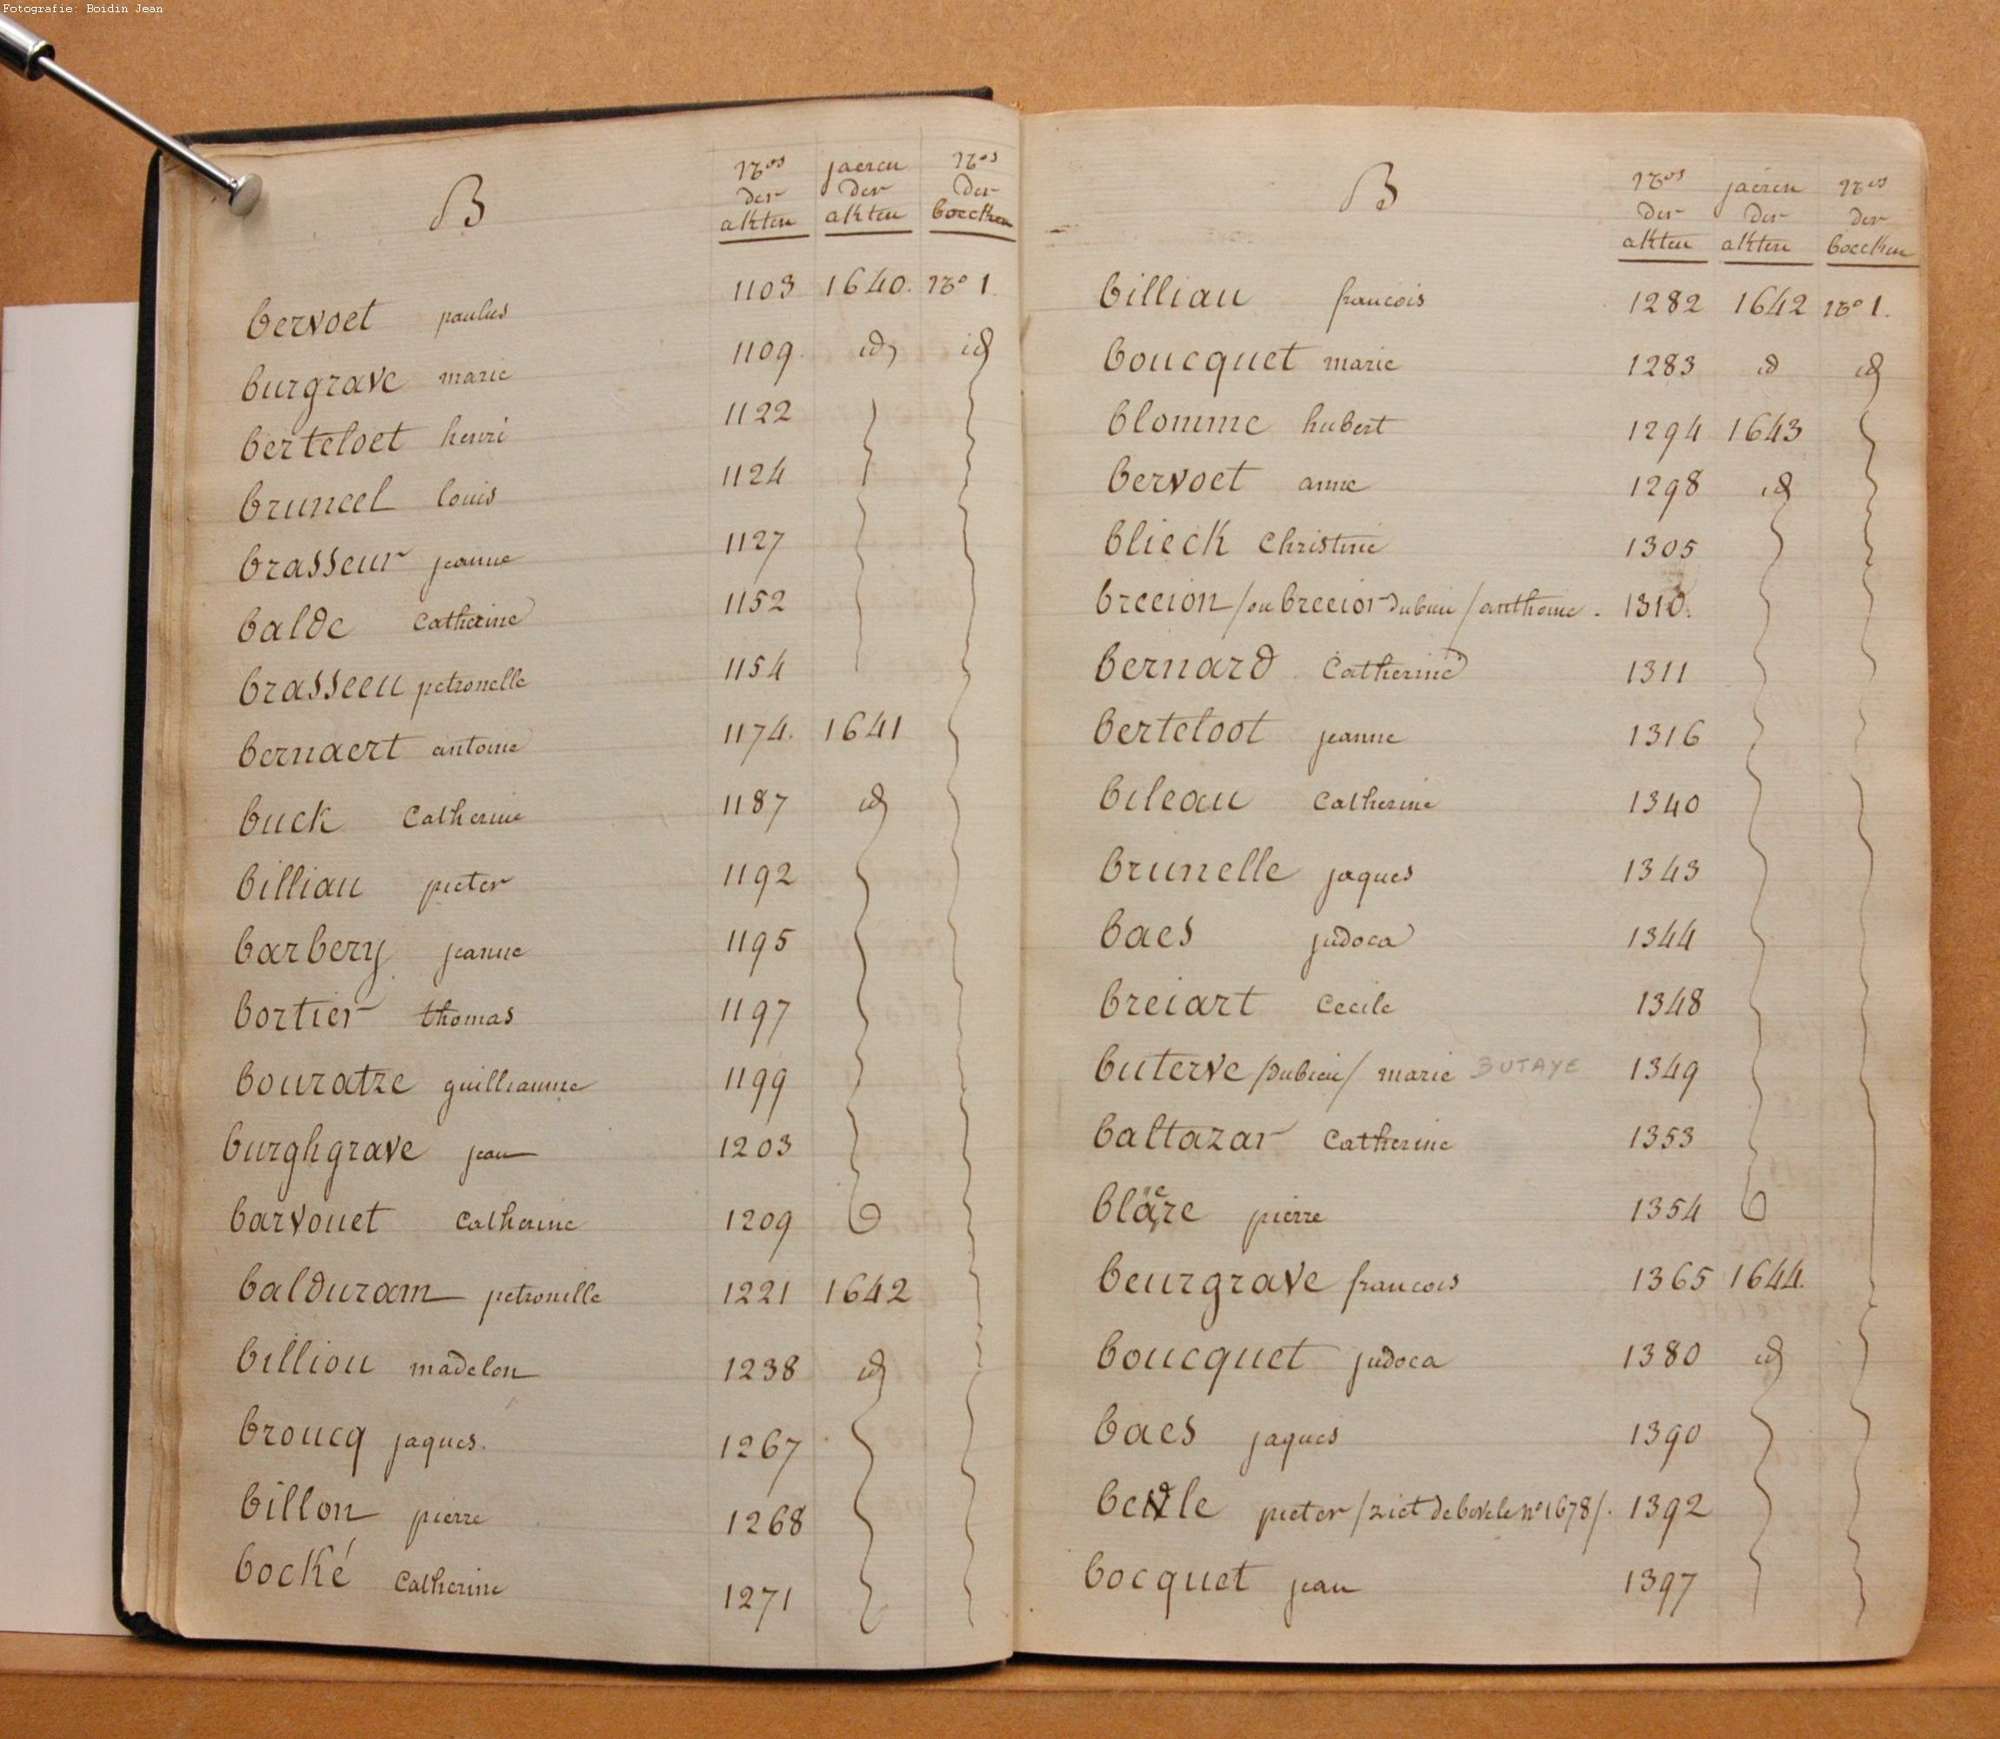 Fotografie: Boidin Jean
B
Nos der akten
jaeren der akten
Nos der boecken
bervoet paulus 1103 1640. No 1.
burgrave marie 1109. id, id
berteloet henri 1122
bruneel louis 1124
brasseur jeanne 1127
balde Catherine 1152
brasseeu petronelle 1154
bernaert antoine 1174. 1641
buck Catherine 1187 id
billiau pieter 1192
barbery jeanne 1195
bortier thomas 1197
bouratre guilliaume 1199
burghgrave jean 1203
barvouet Catherine 1209
balduram petronille 1221 1642
billiou madelon 1238 id
broucq jaques. 1267
billon pierre 1268
bocké Catherine 1271
B
Nos der akten
jaeren der akten
Nos der boecken
billiau francois 1282 1642 No 1.
boucquet marie 1283 id id
blomme hubert 1294 1643
bervoet anne 1298 id
blieck Christine 1305
breeion /ou breeior dubieu/ anthoine. 1310.
bernard Catherine 1311
berteloot jeanne 1316
bileau Catherine 1340
brunelle jaques 1343
baes judoca 1344
breiart Cecile 1348
buterve /dubieu/ marie BUTAYE 1349
baltazar Catherine 1353
pierre 1354
beurgrave francois 1365 1644.
boucquet judoca 1380 id
baes jaques 1390
pieter /ziet de bevele no 1678/. 1392
bocquet jean 1397